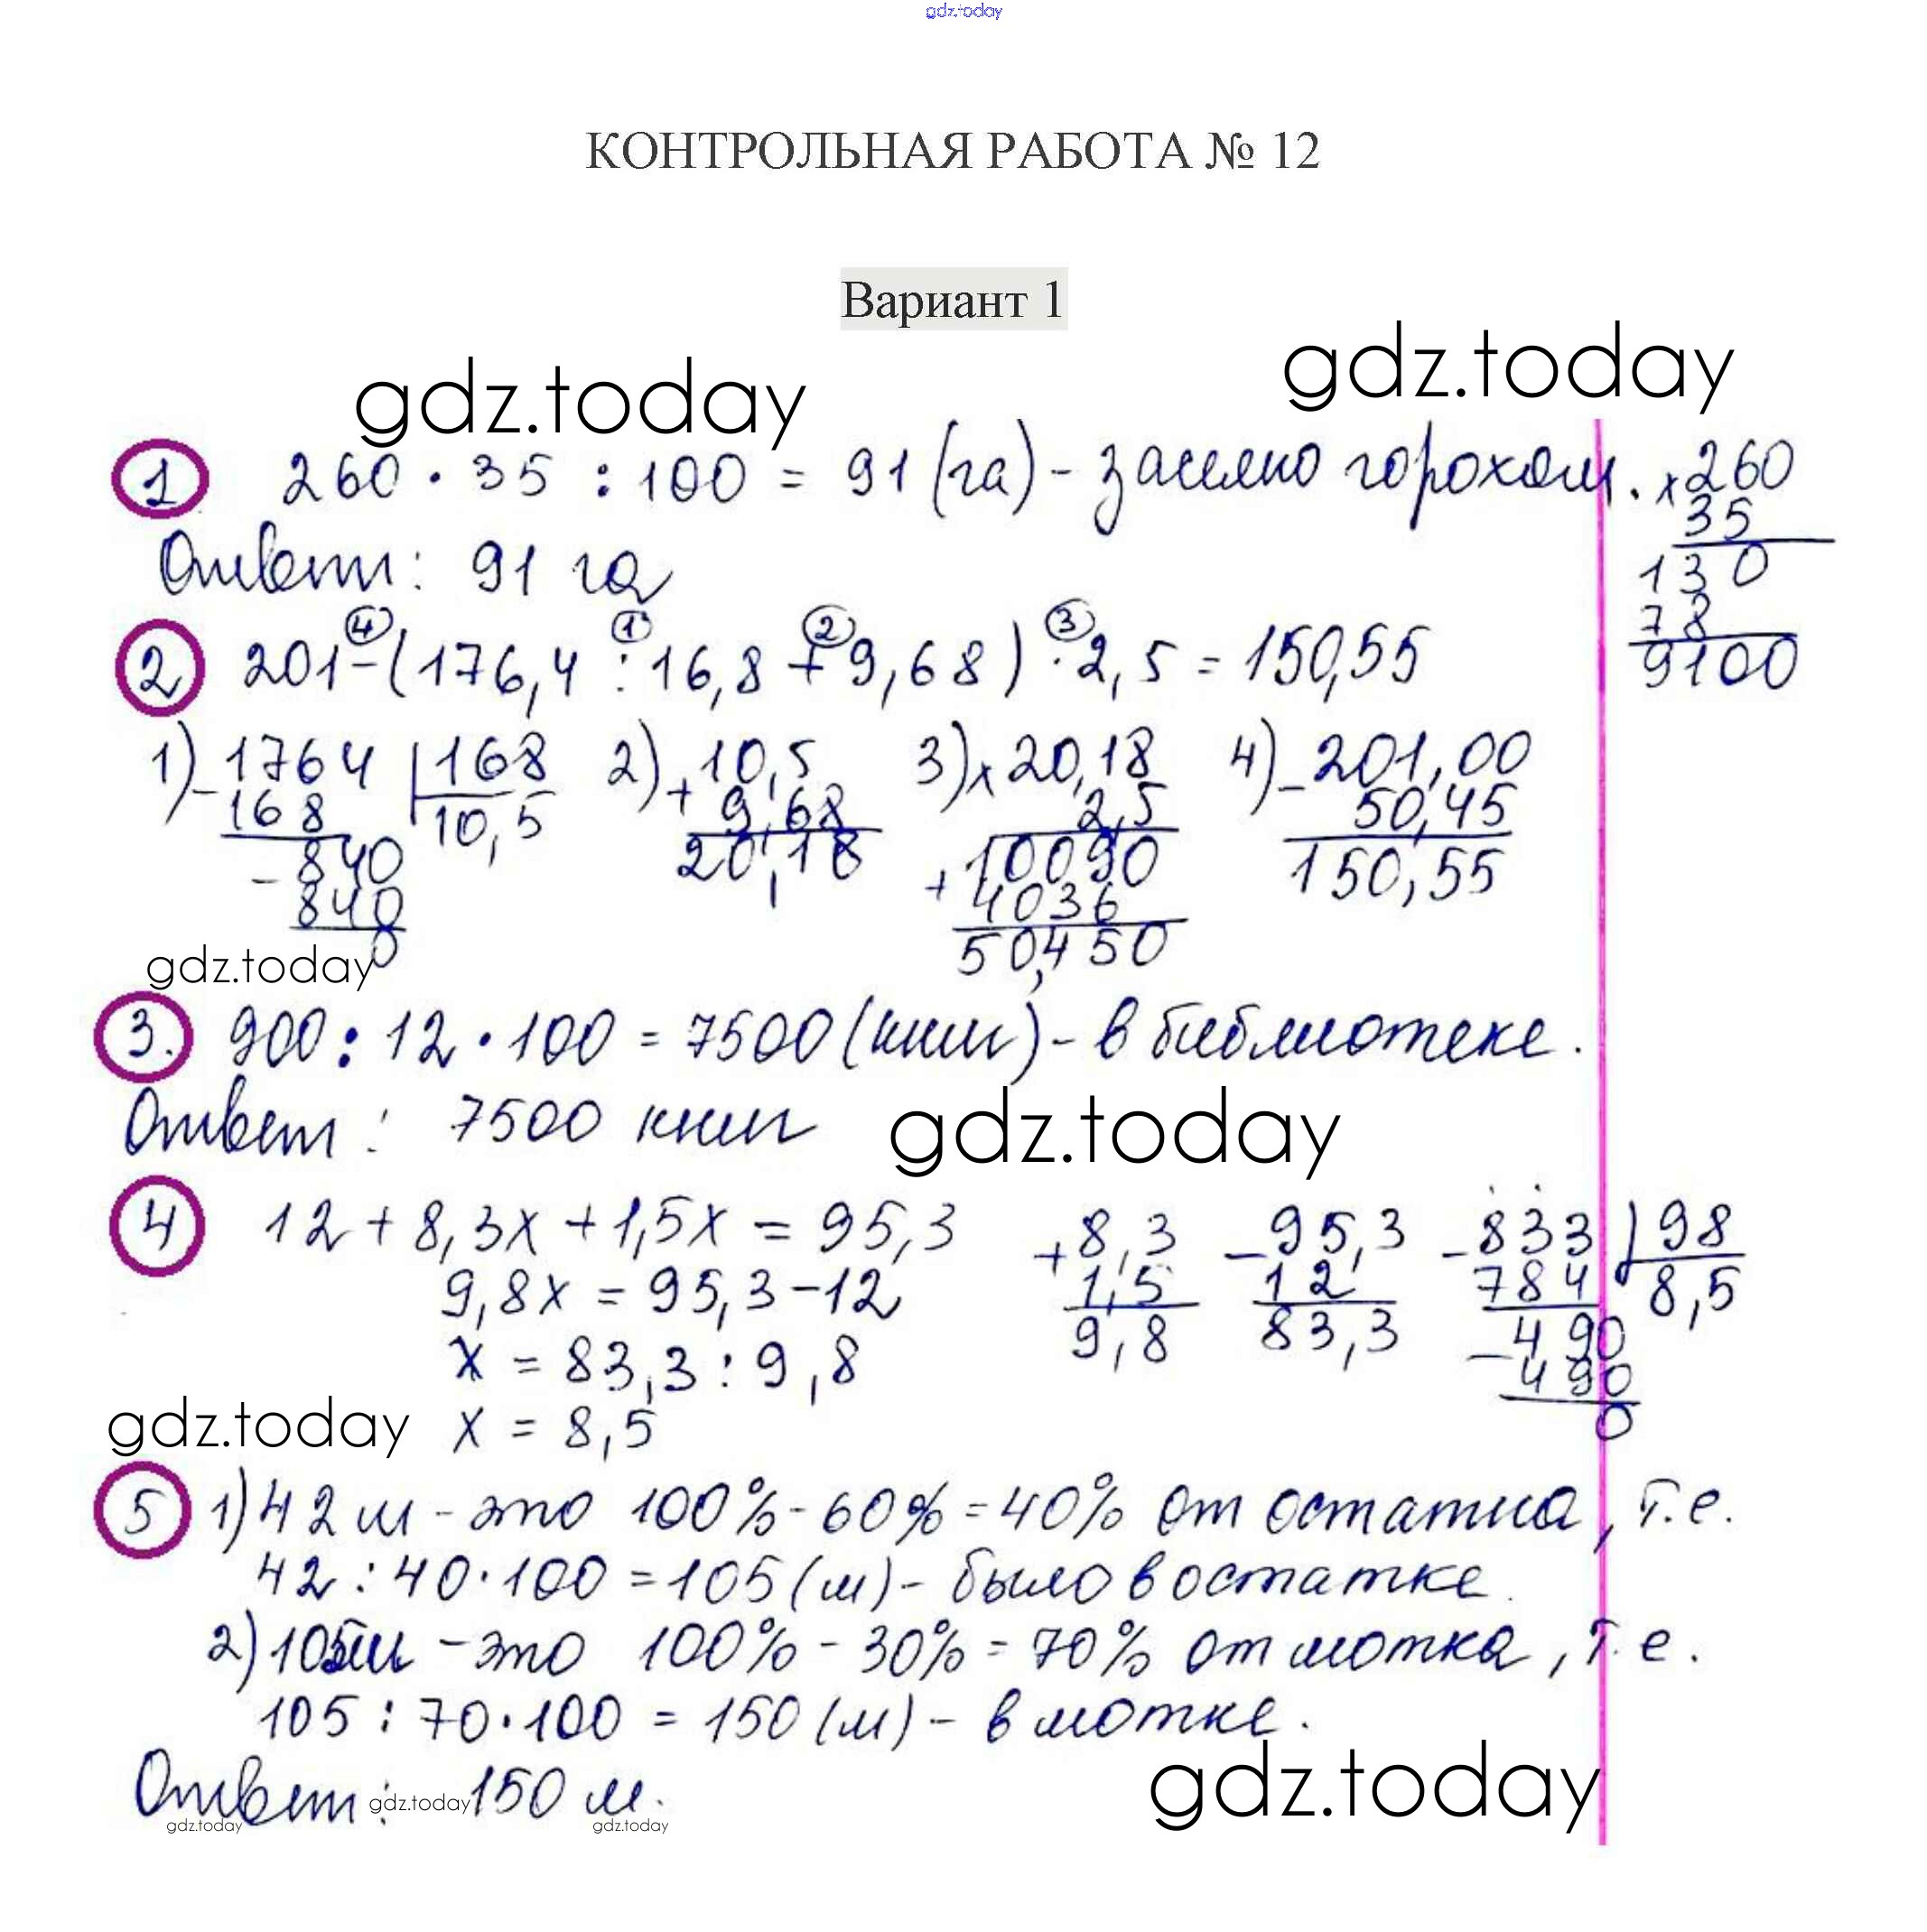 gdz.today
КОНТРОЛЬНАЯ РАБОТА № 12
Вариант 1
gdz.today
gdz.today
1 260 · 35 : 100 = 91 (га) - засеяно горохом.
× 260
35
130
78
9100
Ответ: 91 га
4 1 2 3
2 201 - (176,4 : 16,8 + 9,68) · 2,5 = 150,55
1) - 1764 | 168
168 10,5
- 840
840
0
2) + 10,5
9,68
20,18
3) × 20,18
2,5
+ 10090
4036
50,450
4) - 201,00
50,45
150,55
gdz.today
3. 900 : 12 · 100 = 7500 (книг) - в библиотеке.
Ответ: 7500 книг
gdz.today
4 12 + 8,3х + 1,5х = 95,3
9,8х = 95,3 - 12
х = 83,3 : 9,8
х = 8,5
+ 8,3
1,5
9,8
- 95,3
12
83,3
- 833 | 98
784 8,5
- 490
490
0
gdz.today
5 1) 42 м - это 100% - 60% = 40% от остатка, т.е.
42 : 40 · 100 = 105 (м) - было в остатке.
2) 105 м - это 100% - 30% = 70% от мотка, т.е.
105 : 70 · 100 = 150 (м) - в мотке.
gdz.today
Ответ: 150 м.
gdz.today
gdz.today
gdz.today